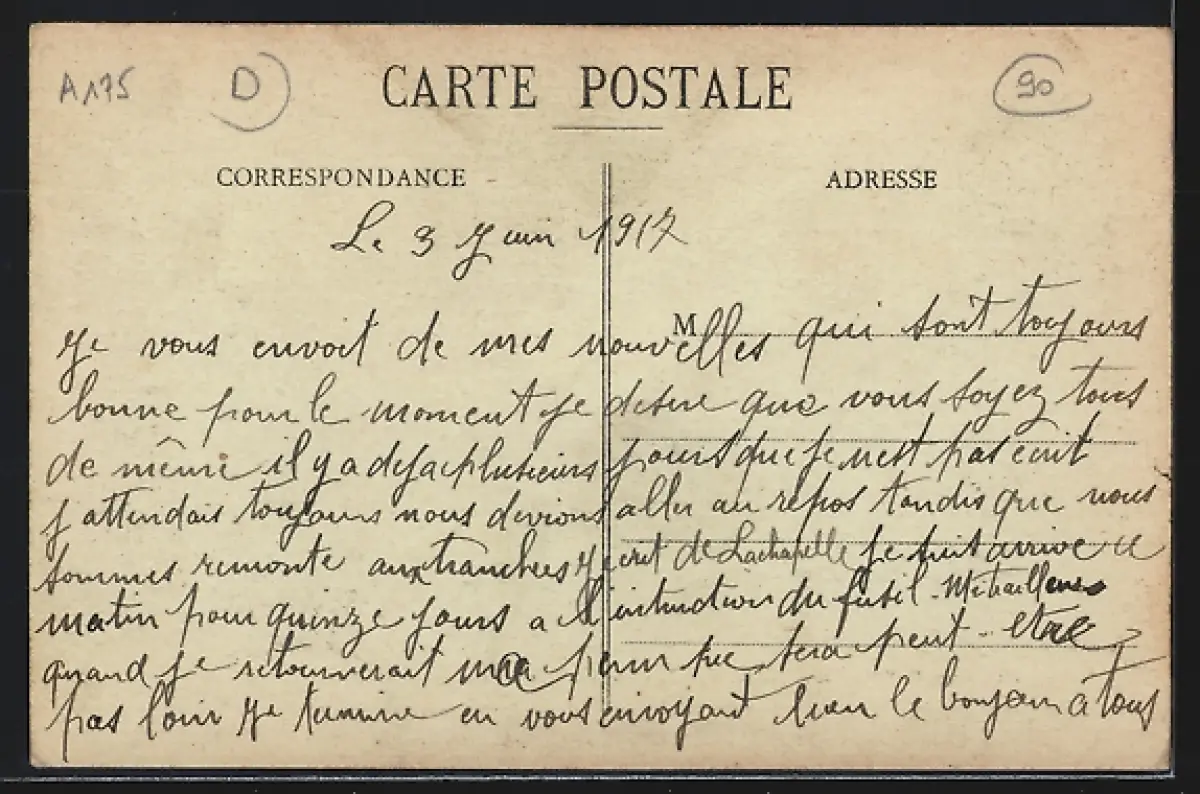 A175 D 90
CARTE POSTALE
CORRESPONDANCE ADRESSE
Le 3 Juin 1917
M
Je vous envoit de mes nouvelles qui sont toujours
bonne pour le moment je desire que vous soyez tous
de même il y a deja plusieurs jours que je nest pas ecrit
j attendais toujours nous devions aller au repos tandis que nous
sommes remonte aux tranchees Jecrit de Lachapelle je suit arrive ce
matin pour quinze jours a l'instruction du fusil-Mitrailleur
quand je retournerait ma perm ne sera peut-etre
pas loin Je termine en vous envoyant bien le bonjour a tous